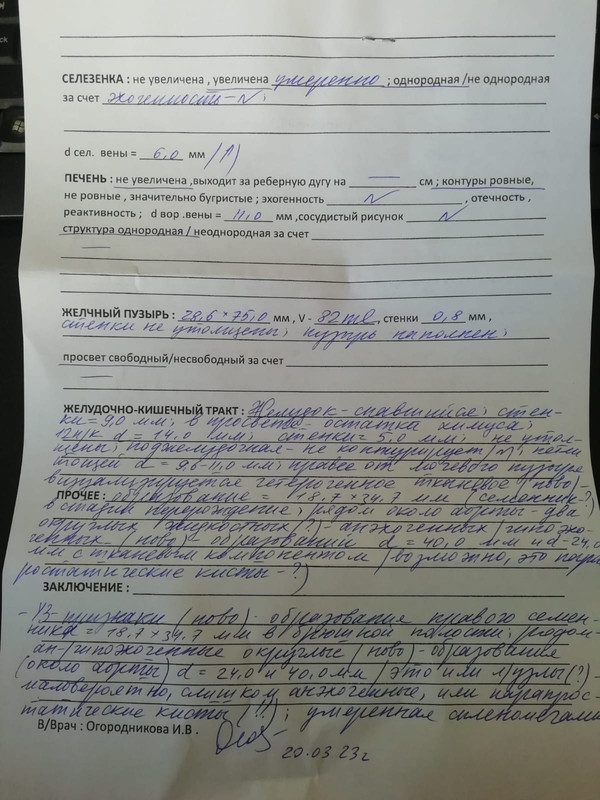 СЕЛЕЗЕНКА : не увеличена , увеличена умеренно ; однородная /не однородная
за счет эхогенность – N ;
d сел. вены = 6,0 мм (↑)
ПЕЧЕНЬ : не увеличена ,выходит за реберную дугу на — см ; контуры ровные,
не ровные , значительно бугристые ; эхогенность N , отечность ,
реактивность ; d вор .вены = 11,0 мм ,сосудистый рисунок N
структура однородная / неоднородная за счет
—
ЖЕЛЧНЫЙ ПУЗЫРЬ : 28,6 × 75,0 мм , V - 82 ml , стенки 0,8 мм ,
стенки не утолщены; пузырь наполнен;
просвет свободный/несвободный за счет
—
ЖЕЛУДОЧНО-КИШЕЧНЫЙ ТРАКТ : Желудок – спавшийся; стен-
ки = 9,0 мм; в просвете – остатка химуса;
12п/к d = 14,0 мм; стенки = 5,0 мм; не утол-
щены; поджелудочная – не контурирует /N; петли
тощей d = 9,6-11,0 мм; правее от мочевого пузыря
визуализируется гетерогенное тканевое (ново)-
ПРОЧЕЕ : образование = 18,7 × 34,7 мм (семенник-?)
в стадии перерождения; рядом около аорты – два
округлых жидкостных (?) – анэхогенных /гипоэхо-
генных (ново) – образований d = 40,0 мм и d = 24,0
мм с тканевым компонентом (возможно, это парап-
ростатические кисты – ?)
ЗАКЛЮЧЕНИЕ :
– УЗ-признаки (ново)- образования правого семен-
ника = 18,7 × 34,7 мм в брюшной полости; рядом –
ан-/гипоэхогенные округлые (ново)- образования
(около аорты) d = 24,0 и 40,0 мм (это или л/узлы (?) –
маловероятно, слишком анэхогенные, или парапрос-
татические кисты (!!) ; умеренная спленомегалия
В/Врач : Огородникова И.В .
20.03.23г